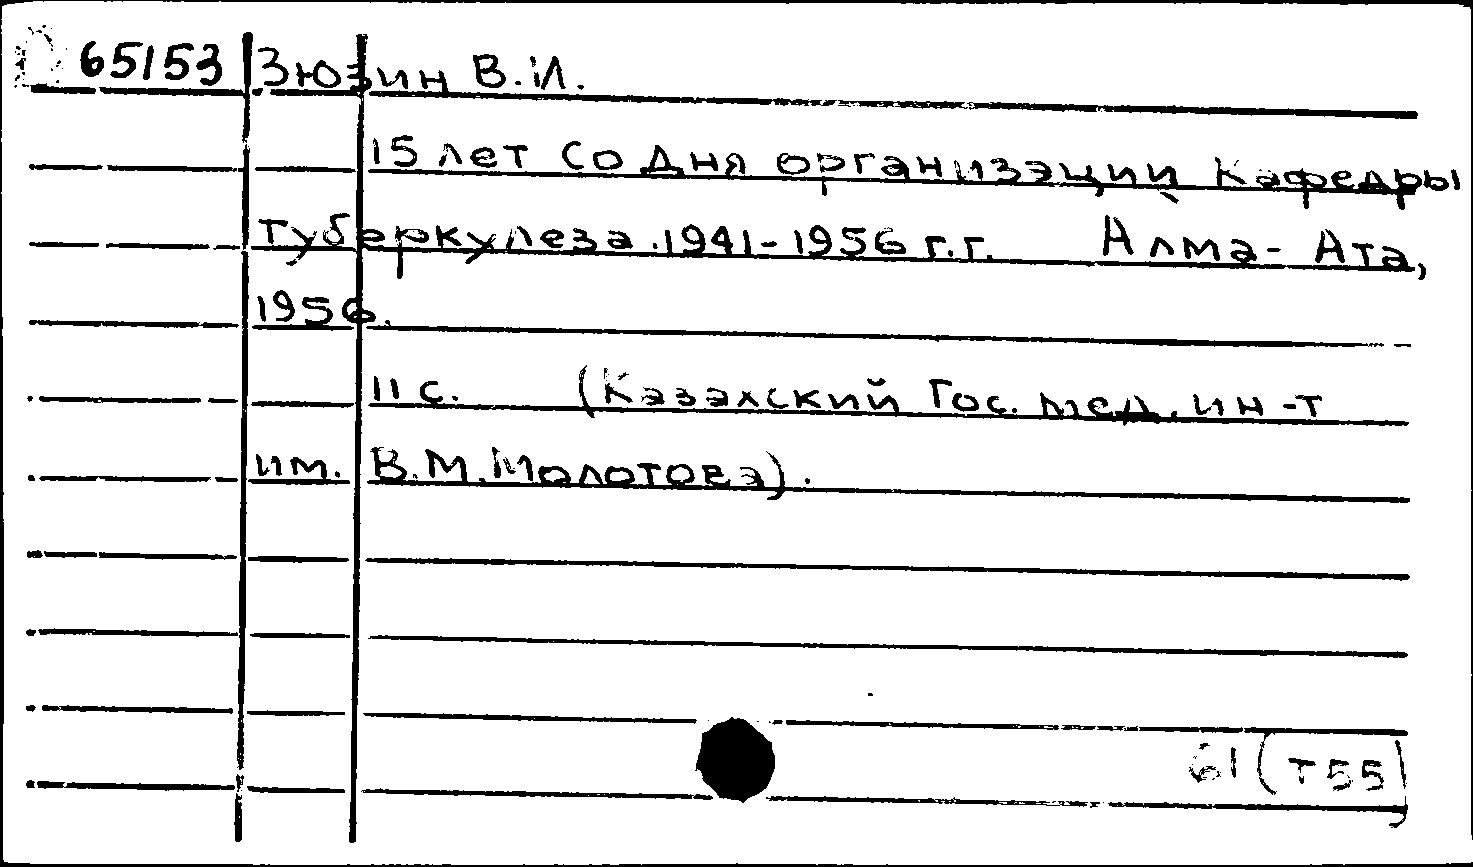 65153 Зюзин В.И.
15 лет со дня организаций кафедры
туберкулеза. 1941-1956 г.г. Алма-Ата,
1956.
11 с. (Казахский Гос. мед. ин-т
им. В.М. Молотова).
61(т55)